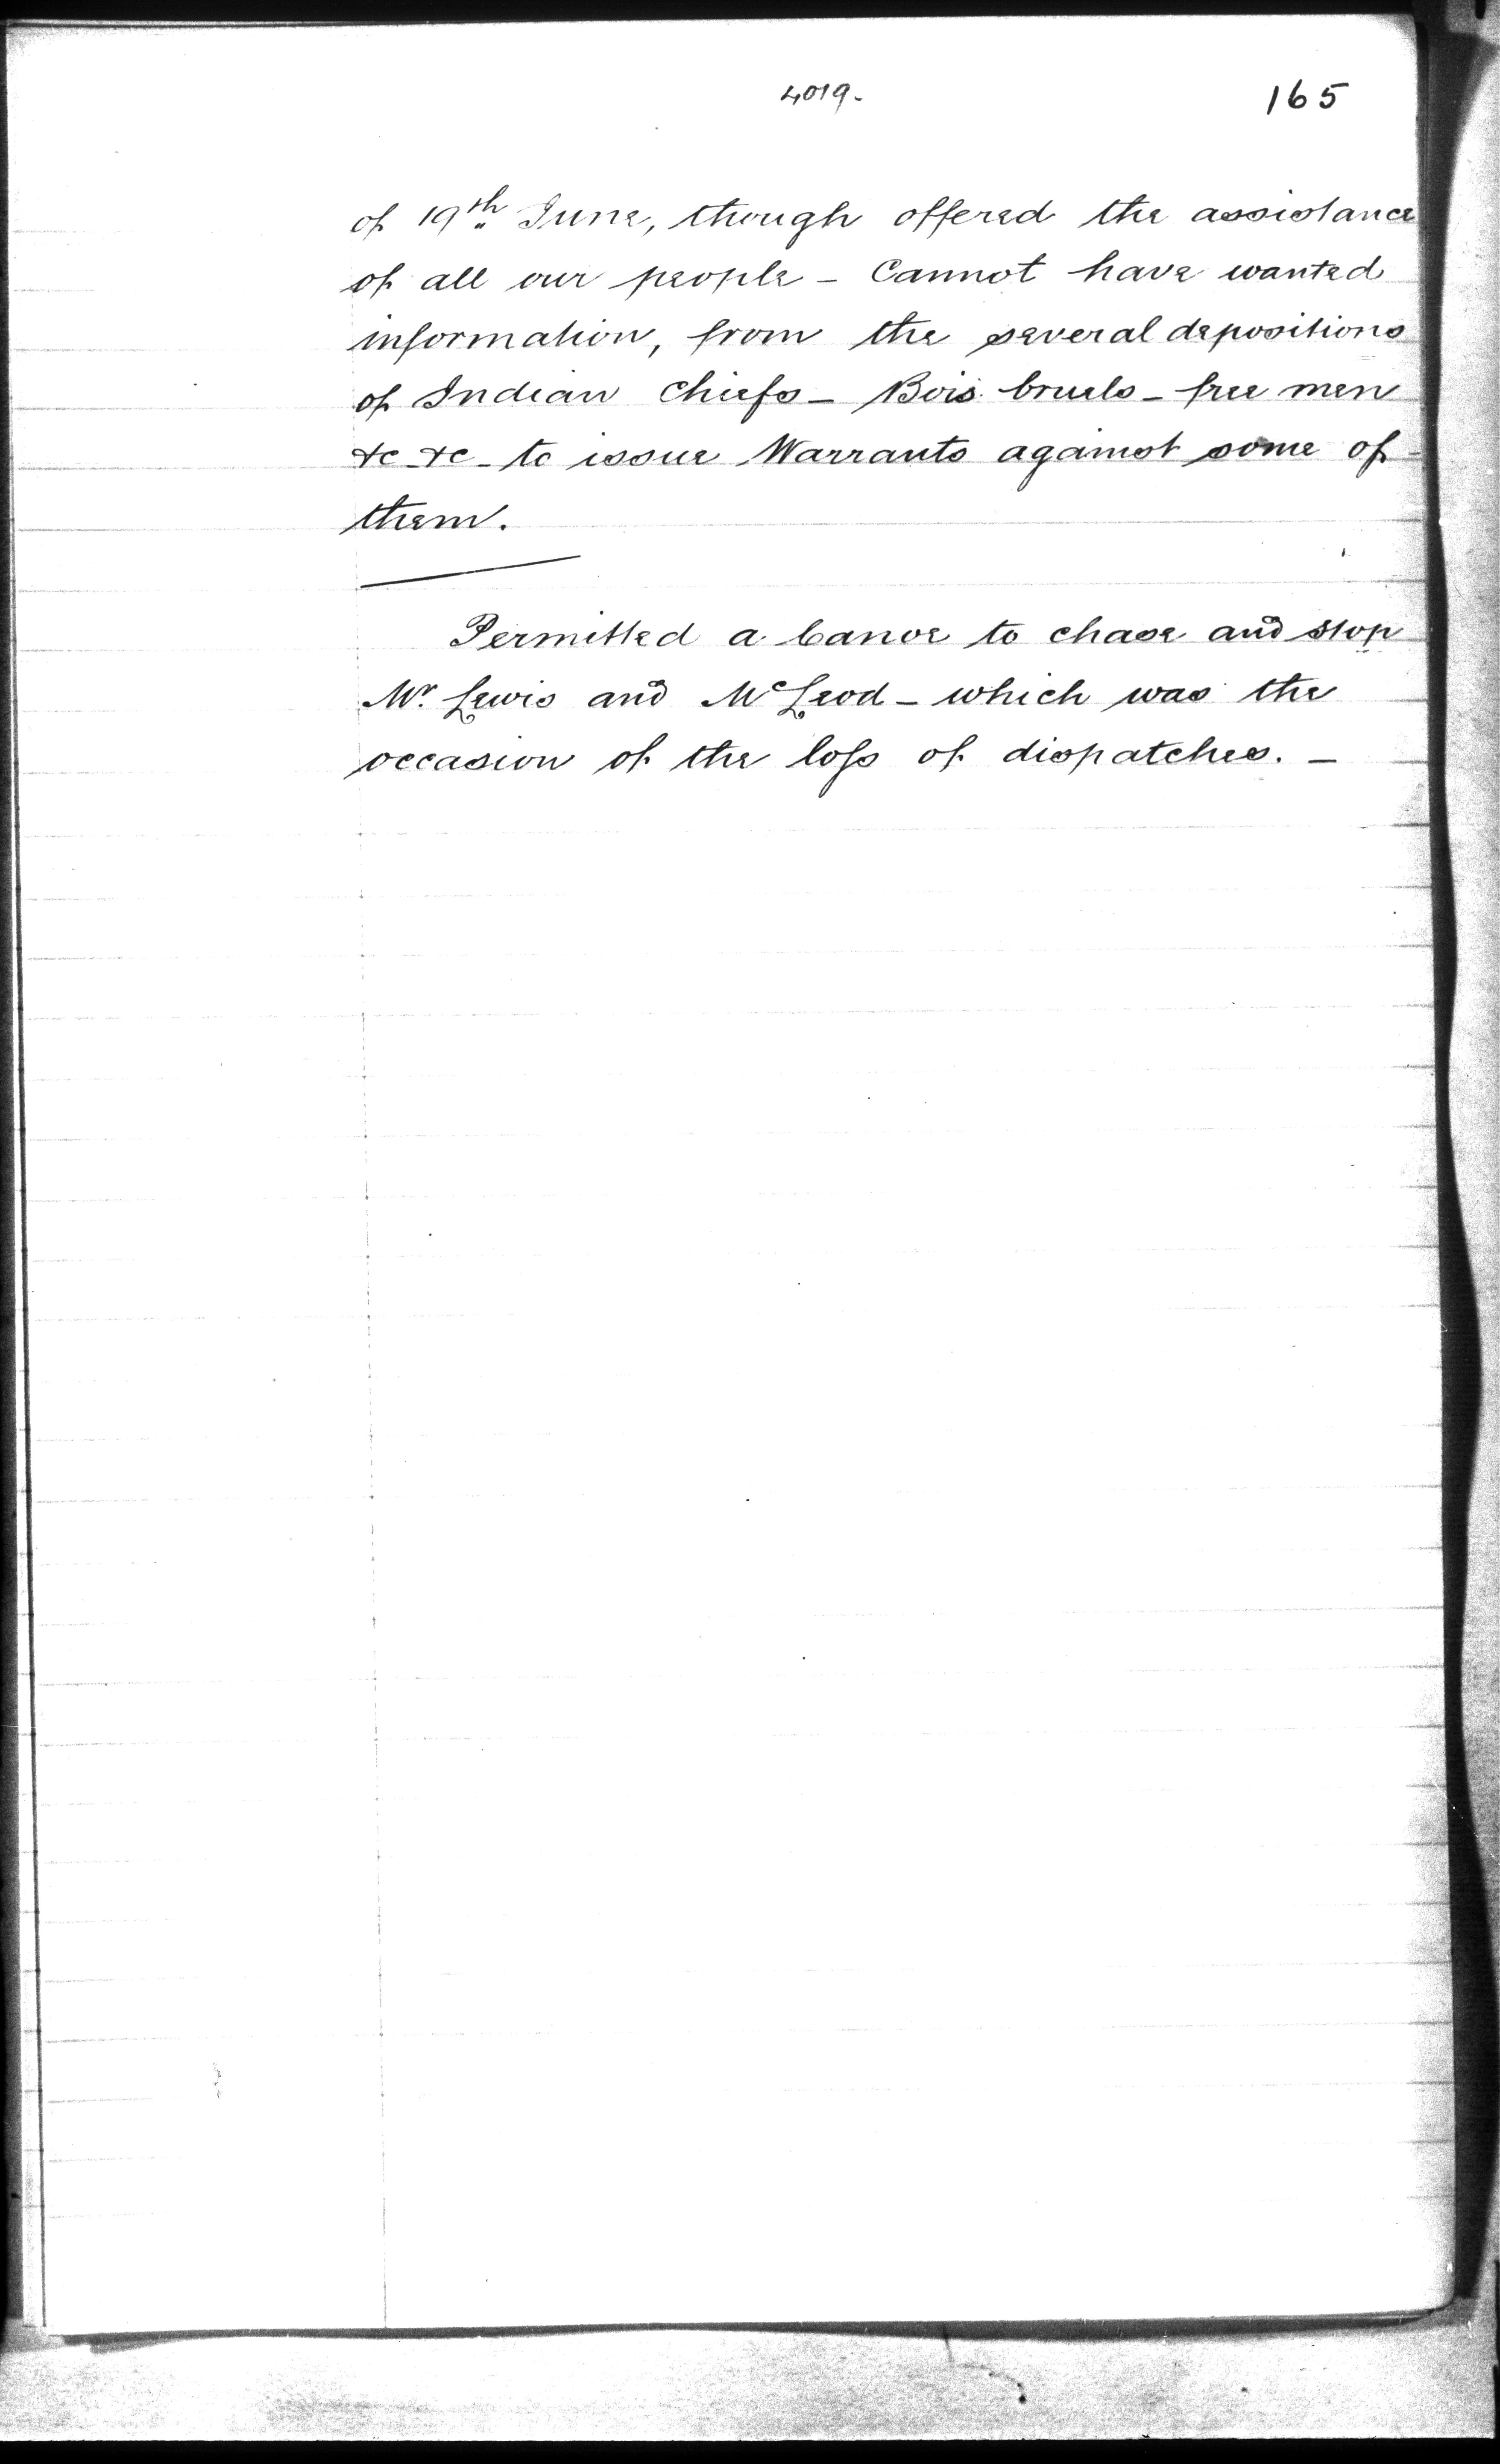 4019.
165
of 19th June, though offered the assistance
of all our people – Cannot have wanted
information, from the several depositions
of Indian Chiefs – Bois bruels – free men
&c &c – to issue Warrants against some of
them.
Permitted a Canoe to chase and stop
Mr. Lewis and McLeod – which was the
occasion of the loſs of dispatches. –